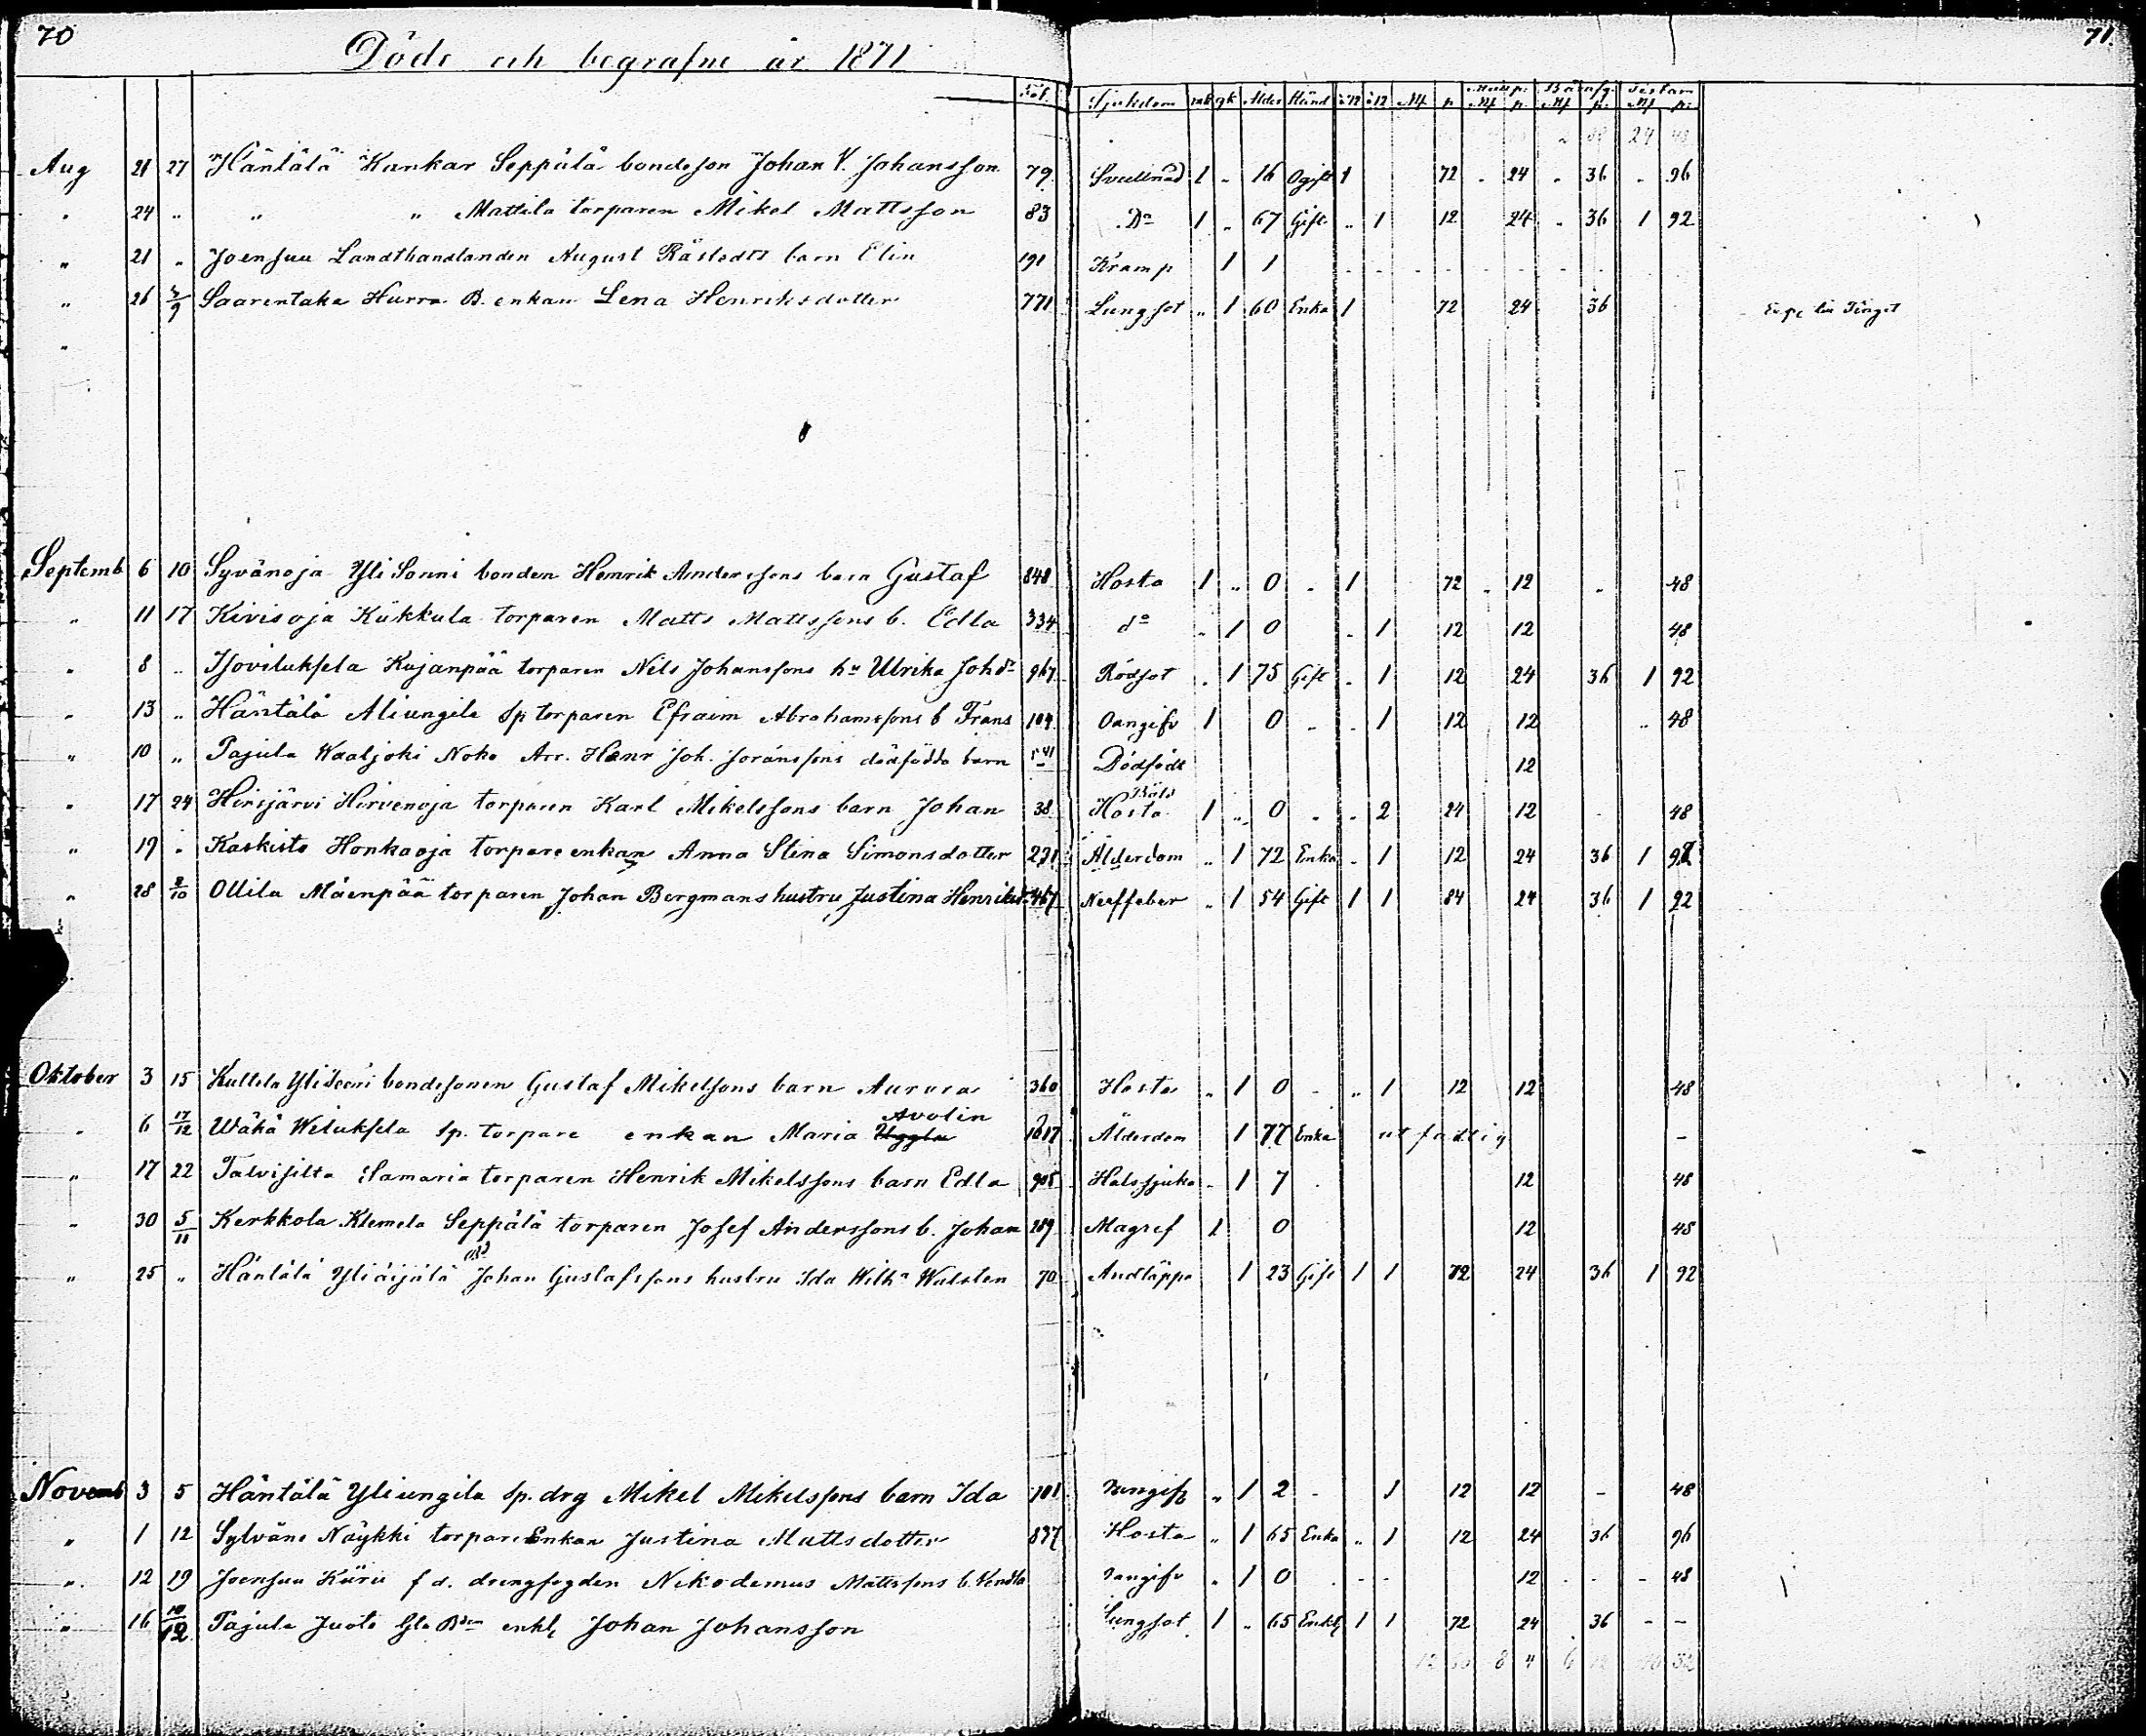 70
71.
Döde och begrafne år 1871
Fol. Sjukdom mk qk Ålder Stånd Mf p. Mf p. Mf p. Testam Mf p.
24
Aug 21 27 Häntälä Kankar Seppälä bondeson Johan V. Johansson 79 Svullnad 1 „ 16 Ogift 1 72 „ 24 „ 36 „ 96
„ 24 „ „ „ Mattila torparen Mikel Mattsson 83 Do 1 „ 67 Gift „ 1 12 24 „ 36 1 92
„ 21 „ Joensuu Landthandlanden August barn Elin 191 Kramp 1 1
„ 26 3/9 Saarentaka Hurra B. enkan Lena Henriksdotter 771 Lungsot „ 1 60 Enka 1 72 24 36
„
Septemb 6 10 Syvänoja Yli Sonni bonden Henrik Anderssons barn Gustaf 848 Hosta 1 „ 0 „ 1 72 „ 12 „ 48
„ 11 17 Kivisoja Kukkula torparen Matts Mattssons b. Edla 334 do „ 1 0 „ 1 12 12 48
„ 8 „ Isoviluksela Kujanpää torparen Nils Johanssons hu Ulrika Johdr 967 Rödsot „ 1 75 Gift „ 1 12 24 36 1 92
„ 13 „ Häntälä Aliungila Sp torparen Efraim Abrahamssons b Frans 104 Oangifv 1 0 „ „ 1 12 12 „ 48
„ 10 „ Pajula Waaljoki Noko Arr. Henr Joh. dödfödda barn 541 Dödfödt 12
„ 17 24 Hirsjärvi Hirvenoja torparen Karl Mikelssons barn Johan 38 Hosta 1 „ 0 „ „ 2 24 12 48
„ 19 „ Kaskisto Honkaoja torpareenkan Anna Stina Simonsdotter 231 Ålderdom „ 1 72 Enka „ 1 12 24 36 1 92
„ 28 2/10 Ollila Mäenpää torparen Johan Bergmans hustru Justina Henriksd. 467 Nerffeber „ 1 54 Gift 1 1 84 24 36 1 92
Oktober 3 15 Kultela bondesonen Gustaf Mikelssons barn Aurora 360 Hosta „ 1 0 „ „ 1 12 12 48
Avolin
„ 6 17/12 Wähä Wiluksela sp. torpare enkan Maria Uggla 1017 Ålderdom 1 77 Enka utfattig –
„ 17 22 Talvisilta Samaria torparen Henrik Mikelssons barn Edla 905 Halssjuka „ 1 7 12 48
„ 30 5/11 Kerkkola Klemela Seppälä torparen Josef Anderssons b. Johan 289 Magref 1 0 12 48
„ 25 „ Häntälä Yliäijälä Johan Gustafssons hustru Ida Wilha Walsten 70 Andtäppa 1 23 Gift 1 1 72 24 36 1 92
Novemb 3 5 Häntälä Yliungila Sp. drg Mikel Mikelssons barn Ida 101 Oangifv „ 1 2 „ 1 12 12 – 48
„ 1 12 Sylväne Näykki torpareEnkan Justina Mattsdotter 837 Hosta „ 1 65 Enka „ 1 12 24 36 96
„ 12 19 Joensuu f d. drengfogden Nikodemus Mattssons b. Vendla Oangifv „ 1 0 12 „ „ 48
„ 16 10/12 Pajula Juoto Gla Bdn enkl. Johan Johansson Lungsot 1 „ 65 Enkl 1 1 72 24 36 – –
8 4